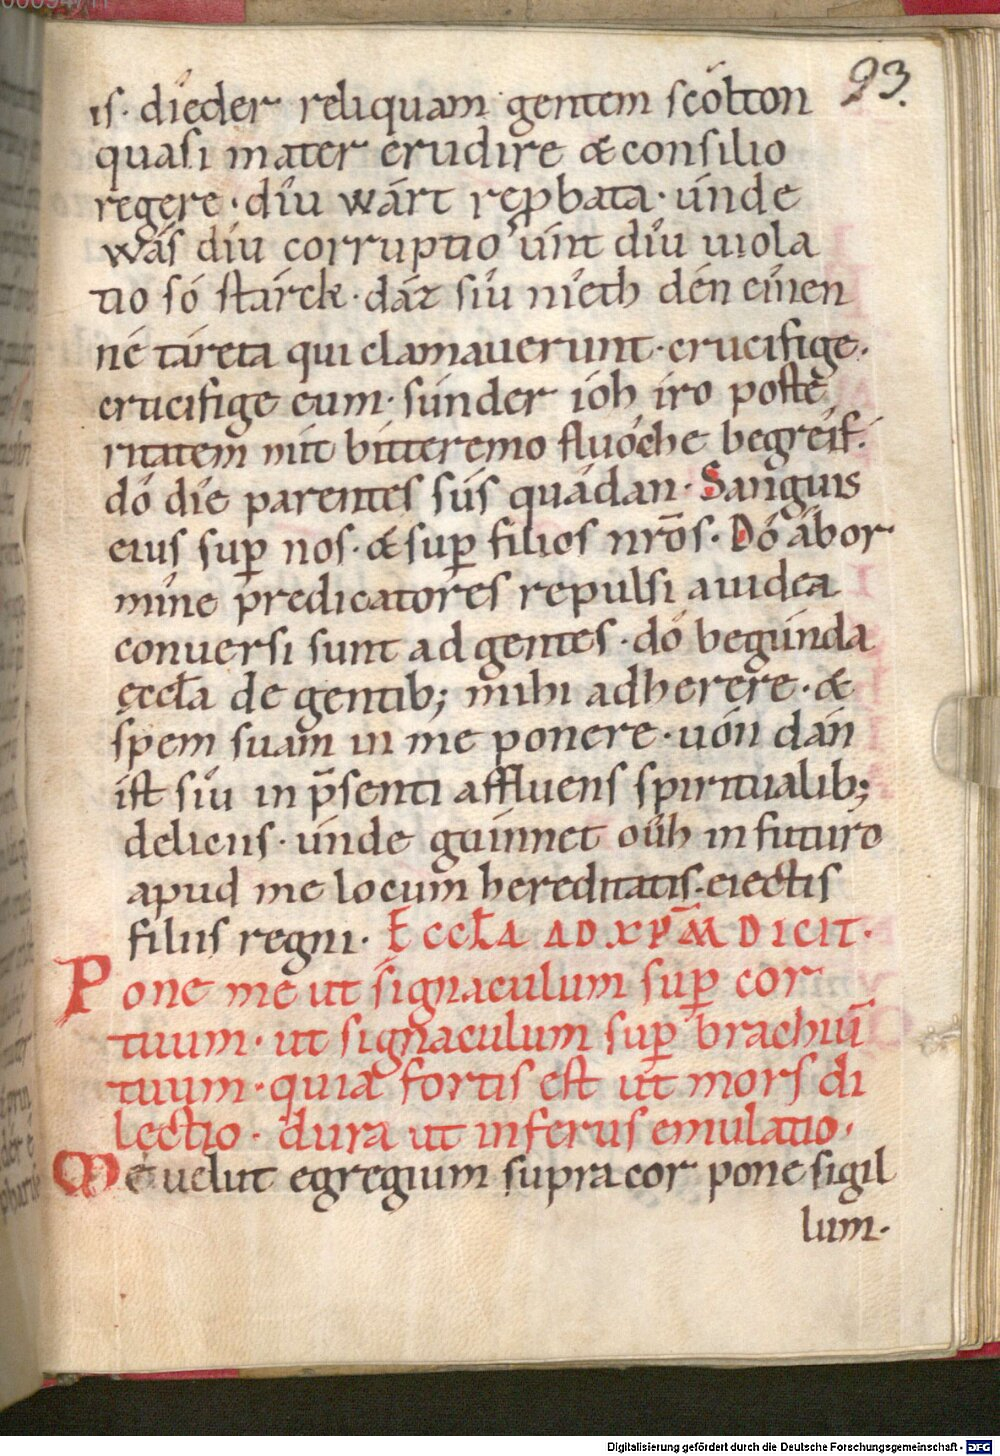 93.
is· dieder reliquam gentem scólton
quasi mater erudire & consilio
regere· díu wárt rep̱bata· únde
wás díu corruptio únt díu uiola
tio só stárck· dáz síu níeth dén eínen
né táreta qui clamauerunt· crucifige·
crucifige eum· súnder ióh íro poste
ritatem mit bitteremo flúoche begreíf·
dó díe parentes sús quádan· Sanguis
eius sup̱ nos· & sup̱ filios nr̄os· Dó ábor
míne predicatores repulsi a iudea
conuersi sunt ad gentes· dó begúnda
ęccła de gentib; mihi adherere· &
spem suam in me ponere· uón dán
ist síu in p̄senti affluens spiritualib;
deliciis· únde guinnet óuh in futuro
apud me locum hereditatis· eiectis
filiis regni· ECCŁA AD XP̄M DICIT·
Pone me ut signaculum sup̱ cor
tuum· ut signaculum sup̱ brachiū
tuum· quia fortis est ut mors di
lectio· dura ut inferus emulatio·
Me uelut egregium supra cor pone sigil
lum·
Digitalisierung gefördert durch die Deutsche Forschungsgemeinschaft - DFG